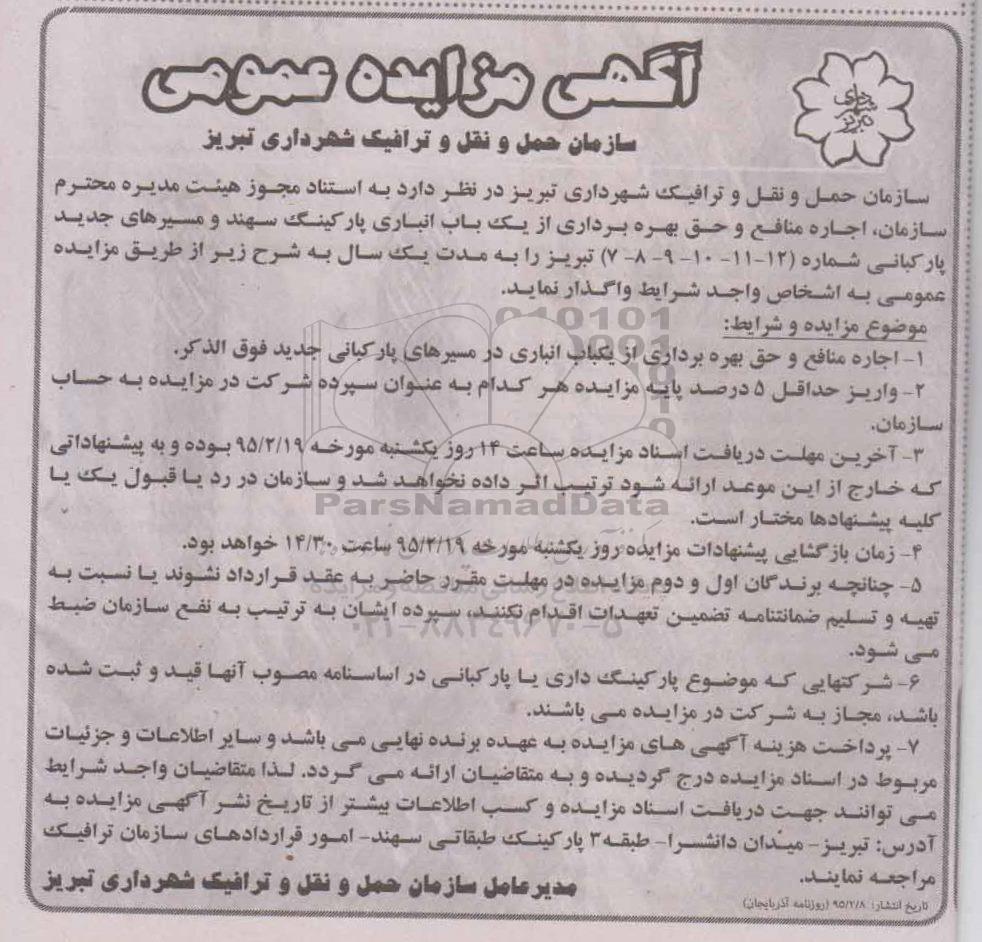 آگهی مزایده عمومی
شهرداری تبریز
سازمان حمل و نقل و ترافیک شهرداری تبریز
سازمان حمل و نقل و ترافیک شهرداری تبریز در نظر دارد به استناد مجوز هیئت مدیره محترم
سازمان، اجاره منافع و حق بهره برداری از یک باب انباری پارکینگ سهند و مسیرهای جدید
پارکبانی شماره (۱۲-۱۱- ۱۰- ۹- ۸- ۷) تبریز را به مدت یک سال به شرح زیر از طریق مزایده
عمومی به اشخاص واجد شرایط واگذار نماید.
موضوع مزایده و شرایط:
۱- اجاره منافع و حق بهره برداری از یکباب انباری در مسیرهای پارکبانی جدید فوق الذکر.
۲- واریز حداقل ۵ درصد پایه مزایده هر کدام به عنوان سپرده شرکت در مزایده به حساب
سازمان.
۳- آخرین مهلت دریافت اسناد مزایده ساعت ۱۴ روز یکشنبه مورخه ۹۵/۲/۱۹ بوده و به پیشنهاداتی
که خارج از این موعد ارائه شود ترتیب اثر داده نخواهد شد و سازمان در رد یا قبول یک یا
ParsNamadData
کلیه پیشنهادها مختار است.
۴- زمان بازگشایی پیشنهادات مزایده روز یکشنبه مورخه ۹۵/۲/۱۹ ساعت ۱۴/۳۰ خواهد بود.
۵- چنانچه برندگان اول و دوم مزایده در مهلت مقرر حاضر به عقد قرارداد نشوند یا نسبت به
تهیه و تسلیم ضمانتنامه تضمین تعهدات اقدام نکنند، سپرده ایشان به ترتیب به نفع سازمان ضبط
۰۲۱-۸۸۳۴۹۶۷۰-۵
می شود.
۶- شرکتهایی که موضوع پارکینگ داری یا پارکبانی در اساسنامه مصوب آنها قید و ثبت شده
باشد، مجاز به شرکت در مزایده می باشند.
۷- پرداخت هزینه آگهی های مزایده به عهده برنده نهایی می باشد و سایر اطلاعات و جزئیات
مربوط در اسناد مزایده درج گردیده و به متقاضیان ارائه می گردد. لذا متقاضیان واجد شرایط
می توانند جهت دریافت اسناد مزایده و کسب اطلاعات بیشتر از تاریخ نشر آگهی مزایده به
آدرس: تبریز- میدان دانشسرا- طبقه۳ پارکینگ طبقاتی سهند- امور قراردادهای سازمان ترافیک
مراجعه نمایند.
مدیرعامل سازمان حمل و نقل و ترافیک شهرداری تبریز
تاریخ انتشار: ۹۵/۲/۸ (روزنامه آذربایجان)